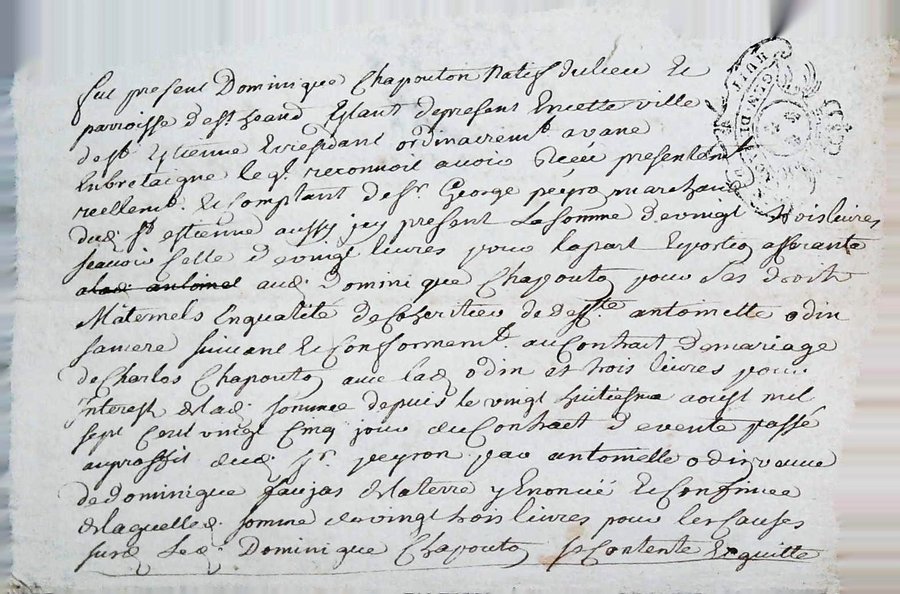 fut present Dominique Chapouton natif du lieu Et
parroisse de st heand Estant depresent En cette ville
de st Estienne Et residant ordinairemt. avane
En bretaigne leql. reconnoit avoir Receu presentem
reellemt. Et Comptant de sr. George peyron marchand
dud. st estienne aussy jcy present La somme de vingt trois livres
scavoir Celle de vingt livres pour lapart Et portion afferante
alad. antoine aud. Dominique Chapouton pour ses droits
Maternels En qualité de Coheritier de defte. antoinette odin
samere suivant Et Conformemt. au Contrait de mariage
de Charles Chapouton avec lad. odin et trois livres pour
jnterest de lad. somme depuis le vingt huitiesme aoust mil
sept Cent vingt Cinq jour du Contrait de vente passé
auproffit dud. sr. peyron par antoinette odin veuve
de dominique faujas de la terre y Enoncée Et Confinee
de laquelled. somme de vingt trois livres pour les Causes
susd. Led. Dominique Chapouton se Contente Et quitte
HUIT